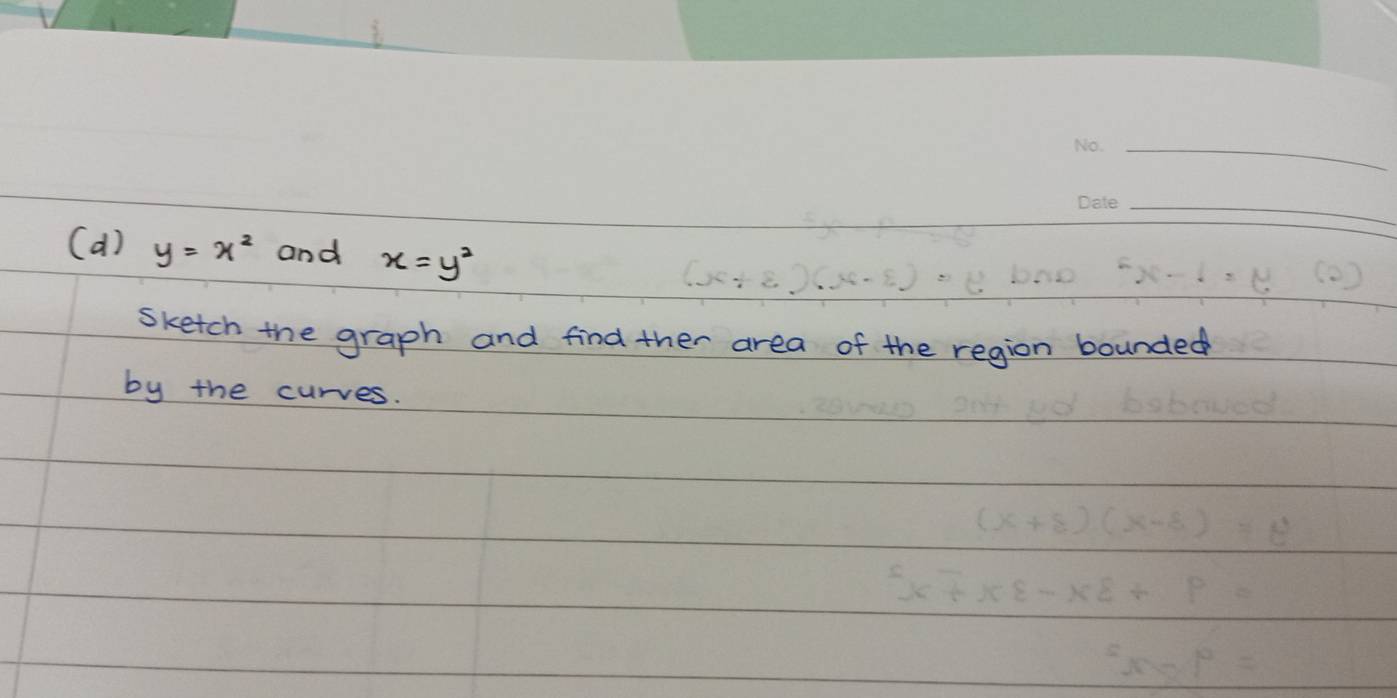 No.
Date
(d) y = x² and x = y²
Sketch the graph and find ther area of the region bounded
by the curves.